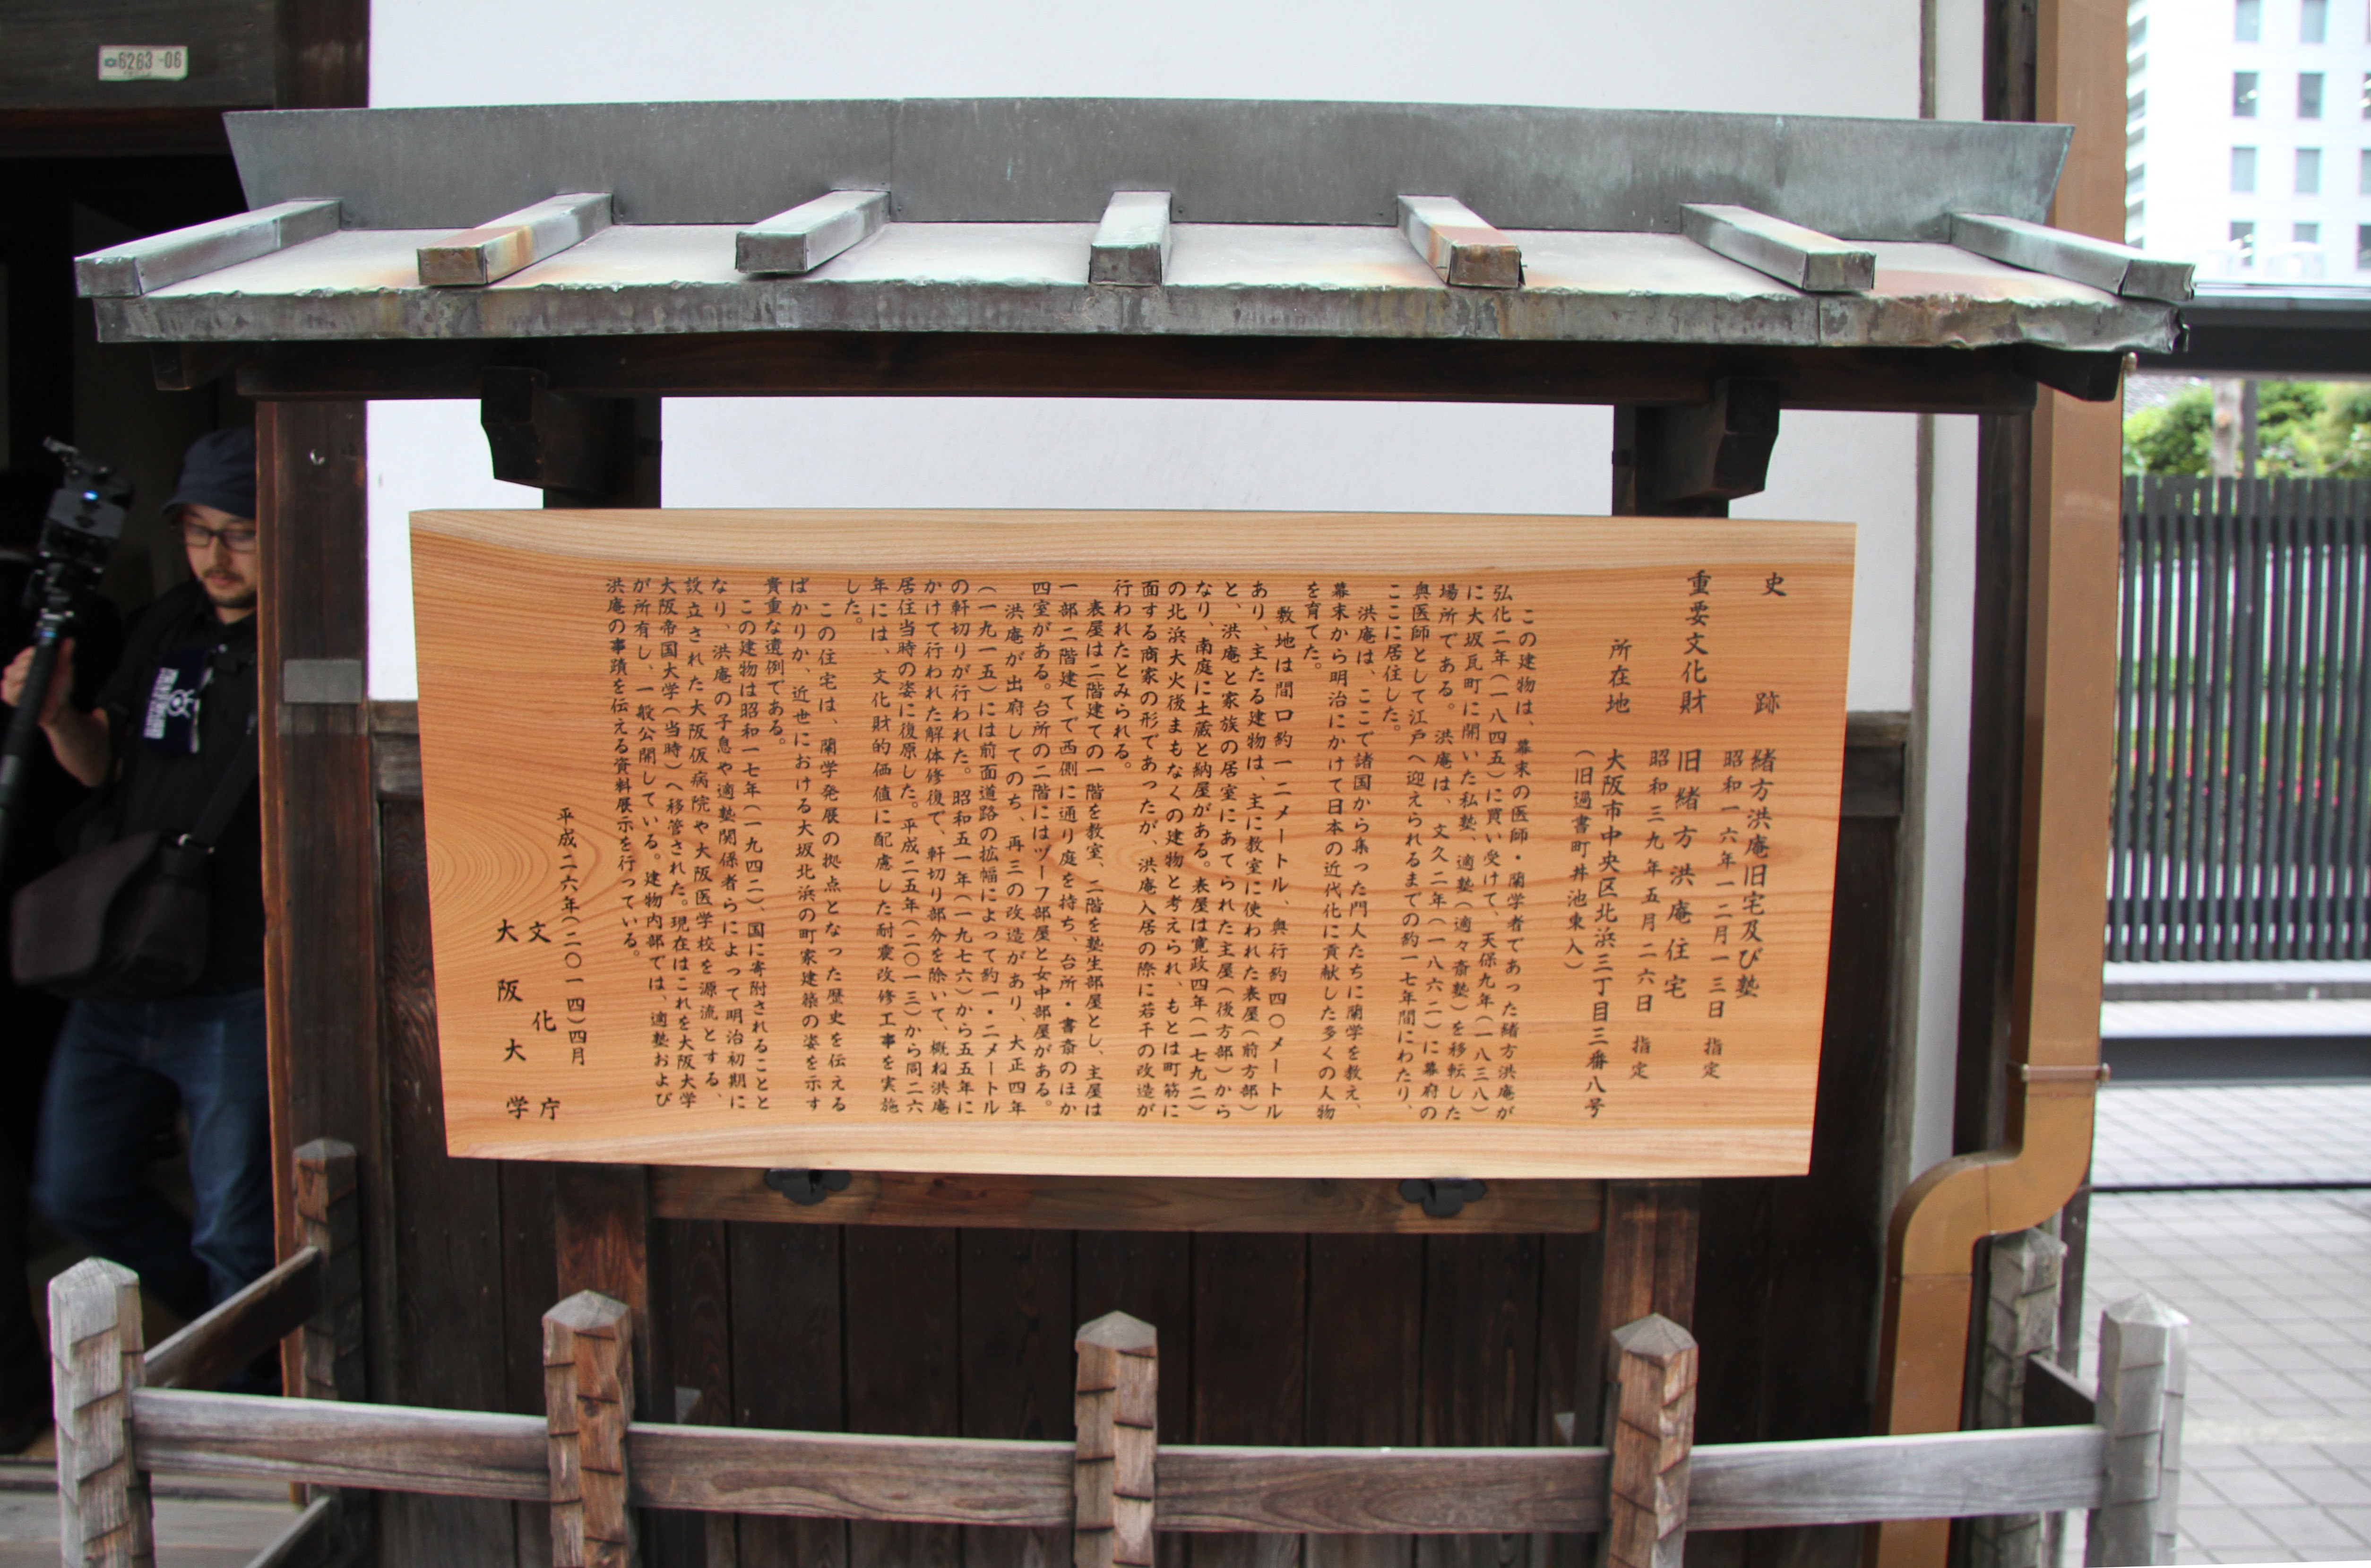 史跡 緒方洪庵旧宅及び塾
昭和一六年一二月一三日 指定
重要文化財 旧緒方洪庵住宅
昭和三九年五月二六日 指定
所在地 大阪市中央区北浜三丁目三番八号
(旧過書町井池東入)
この建物は、幕末の医師・蘭学者であった緒方洪庵が
弘化二年(一八四五)に買い受けて、天保九年(一八三八)
に大坂瓦町に開いた私塾、適塾(適々斎塾)を移転した
場所である。洪庵は、文久二年(一八六二)に幕府の
奥医師として江戸へ迎えられるまでの約一七年間にわたり、
ここに居住した。
洪庵は、ここで諸国から集った門人たちに蘭学を教え、
幕末から明治にかけて日本の近代化に貢献した多くの人物
を育てた。
敷地は間口約一二メートル、奥行約四〇メートル
あり、主たる建物は、主に教室に使われた表屋(前方部)
と、洪庵と家族の居室にあてられた主屋(後方部)から
なり、南庭に土蔵と納屋がある。表屋は寛政四年(一七九二)
の北浜大火後まもなくの建物と考えられ、もとは町筋に
面する商家の形であったが、洪庵入居の際に若干の改造が
行われたとみられる。
表屋は二階建ての一階を教室、二階を塾生部屋とし、主屋は
一部二階建てで西側に通り庭を持ち、台所・書斎のほか
四室がある。台所の二階にはヅーフ部屋と女中部屋がある。
洪庵が出府してのち、再三の改造があり、大正四年
(一九一五)には前面道路の拡幅によって約一・二メートル
の軒切りが行われた。昭和五一年(一九七六)から五五年に
かけて行われた解体修復で、軒切り部分を除いて、概ね洪庵
居住当時の姿に復原した。平成二五年(二〇一三)から同二六
年には、文化財的価値に配慮した耐震改修工事を実施
した。
この住宅は、蘭学発展の拠点となった歴史を伝える
ばかりか、近世における大坂北浜の町家建築の姿を示す
貴重な遺例である。
この建物は昭和一七年(一九四二)、国に寄附されることと
なり、洪庵の子息や適塾関係者らによって明治初期に
設立された大阪仮病院や大阪医学校を源流とする、
大阪帝国大学(当時)へ移管された。現在はこれを大阪大学
が所有し、一般公開している。建物内部では、適塾および
洪庵の事蹟を伝える資料展示を行っている。
平成二六年(二〇一四)四月
文化庁
大阪大学
6263-06